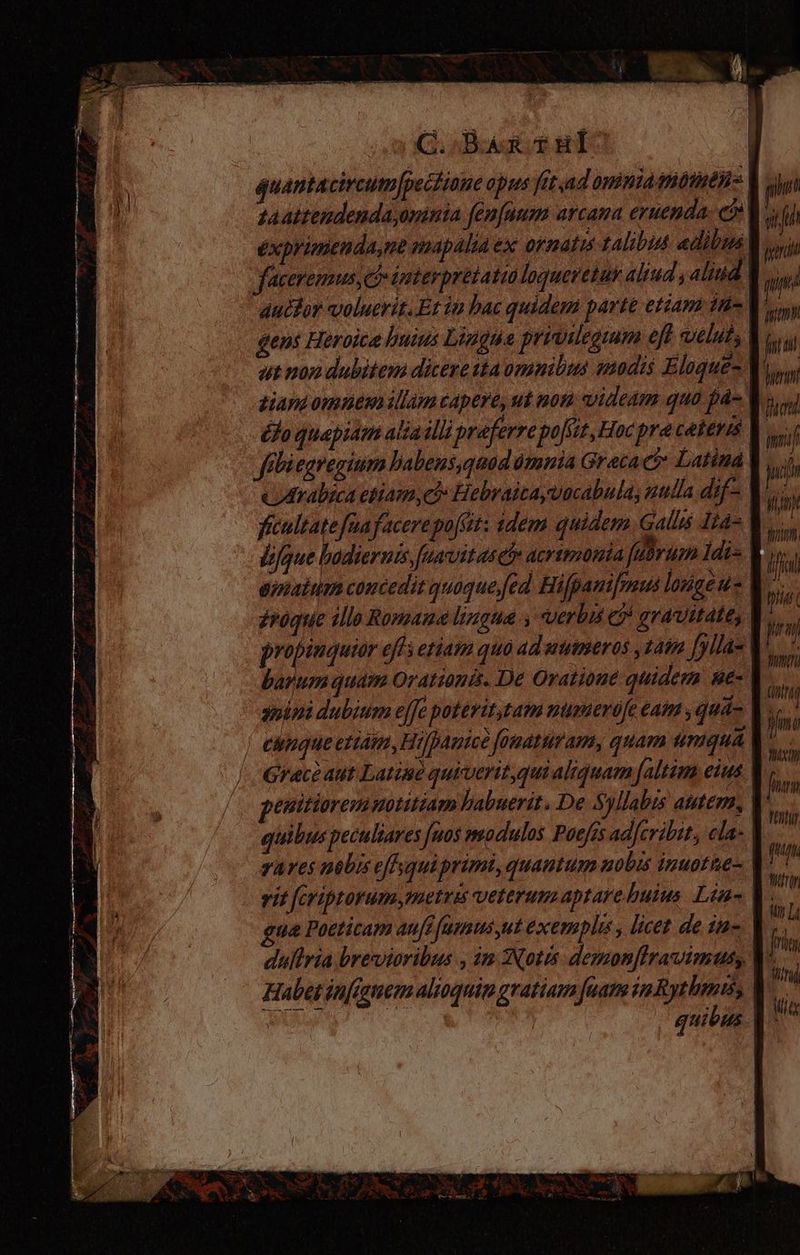 C. BARTHI
quanta circumſpectione opus ſit, ad omnia momen-
ta attendenda, omnia ſenſuum arcana eruenda &
exprimenda, ne mapalia ex ornatis talibus ædibus
faceremus, & interpretatio loqueretur aliud, aliud
auctor voluerit. Et in hac quidem parte etiam in-
gens Heroicæ huius Linguæ privilegium eſt velut,
ut non dubitem dicere ita omnibus modis Eloquē-
tiam omnem illam capere, ut non videam quo pa-
cto quæpiam alia illi præferre poſſit, Hoc præ cæteris
ſibi egregium habens, quod omnia Græca & Latina
Arabica etiam, & Hebraica, vocabula, nulla dif-
ficultate ſua facere poſſit: idem quidem Gallis Ita-
liſque hodiernis, ſuavitas & acrimonia ſuorum Idi-
omatum concedit quoque, ſed Hiſpaniſmus longè u-
tróque illo Romanæ linguæ, verbis & gravitate,
propinquior eſt; etiam quo ad numeros, tam ſylla-
barum quàm Orationis. De Oratione quidem ne-
mini dubium eſſe poterit, tam numeroſe eam, quā-
cunque etiam, Hiſpanicè ſonaturam, quam umquā
Græcè aut Latinè quiverit, qui aliquam ſaltim eius
penitiorem notitiam habuerit. De Syllabis autem,
quibus peculiares ſuos modulos Poeſis adſcribit, cla-
rares nobis eſt, qui primi, quantum nobis innotue-
rit ſcriptorum, metris veterum aptare huius Lin-
guæ Poeticam auſi ſumus, ut exemplis, licet de in-
duſtria brevioribus, in Notis demonſtravimus,
Habet inſignem alioquin gratiam ſuam in Rythmis,
quibus